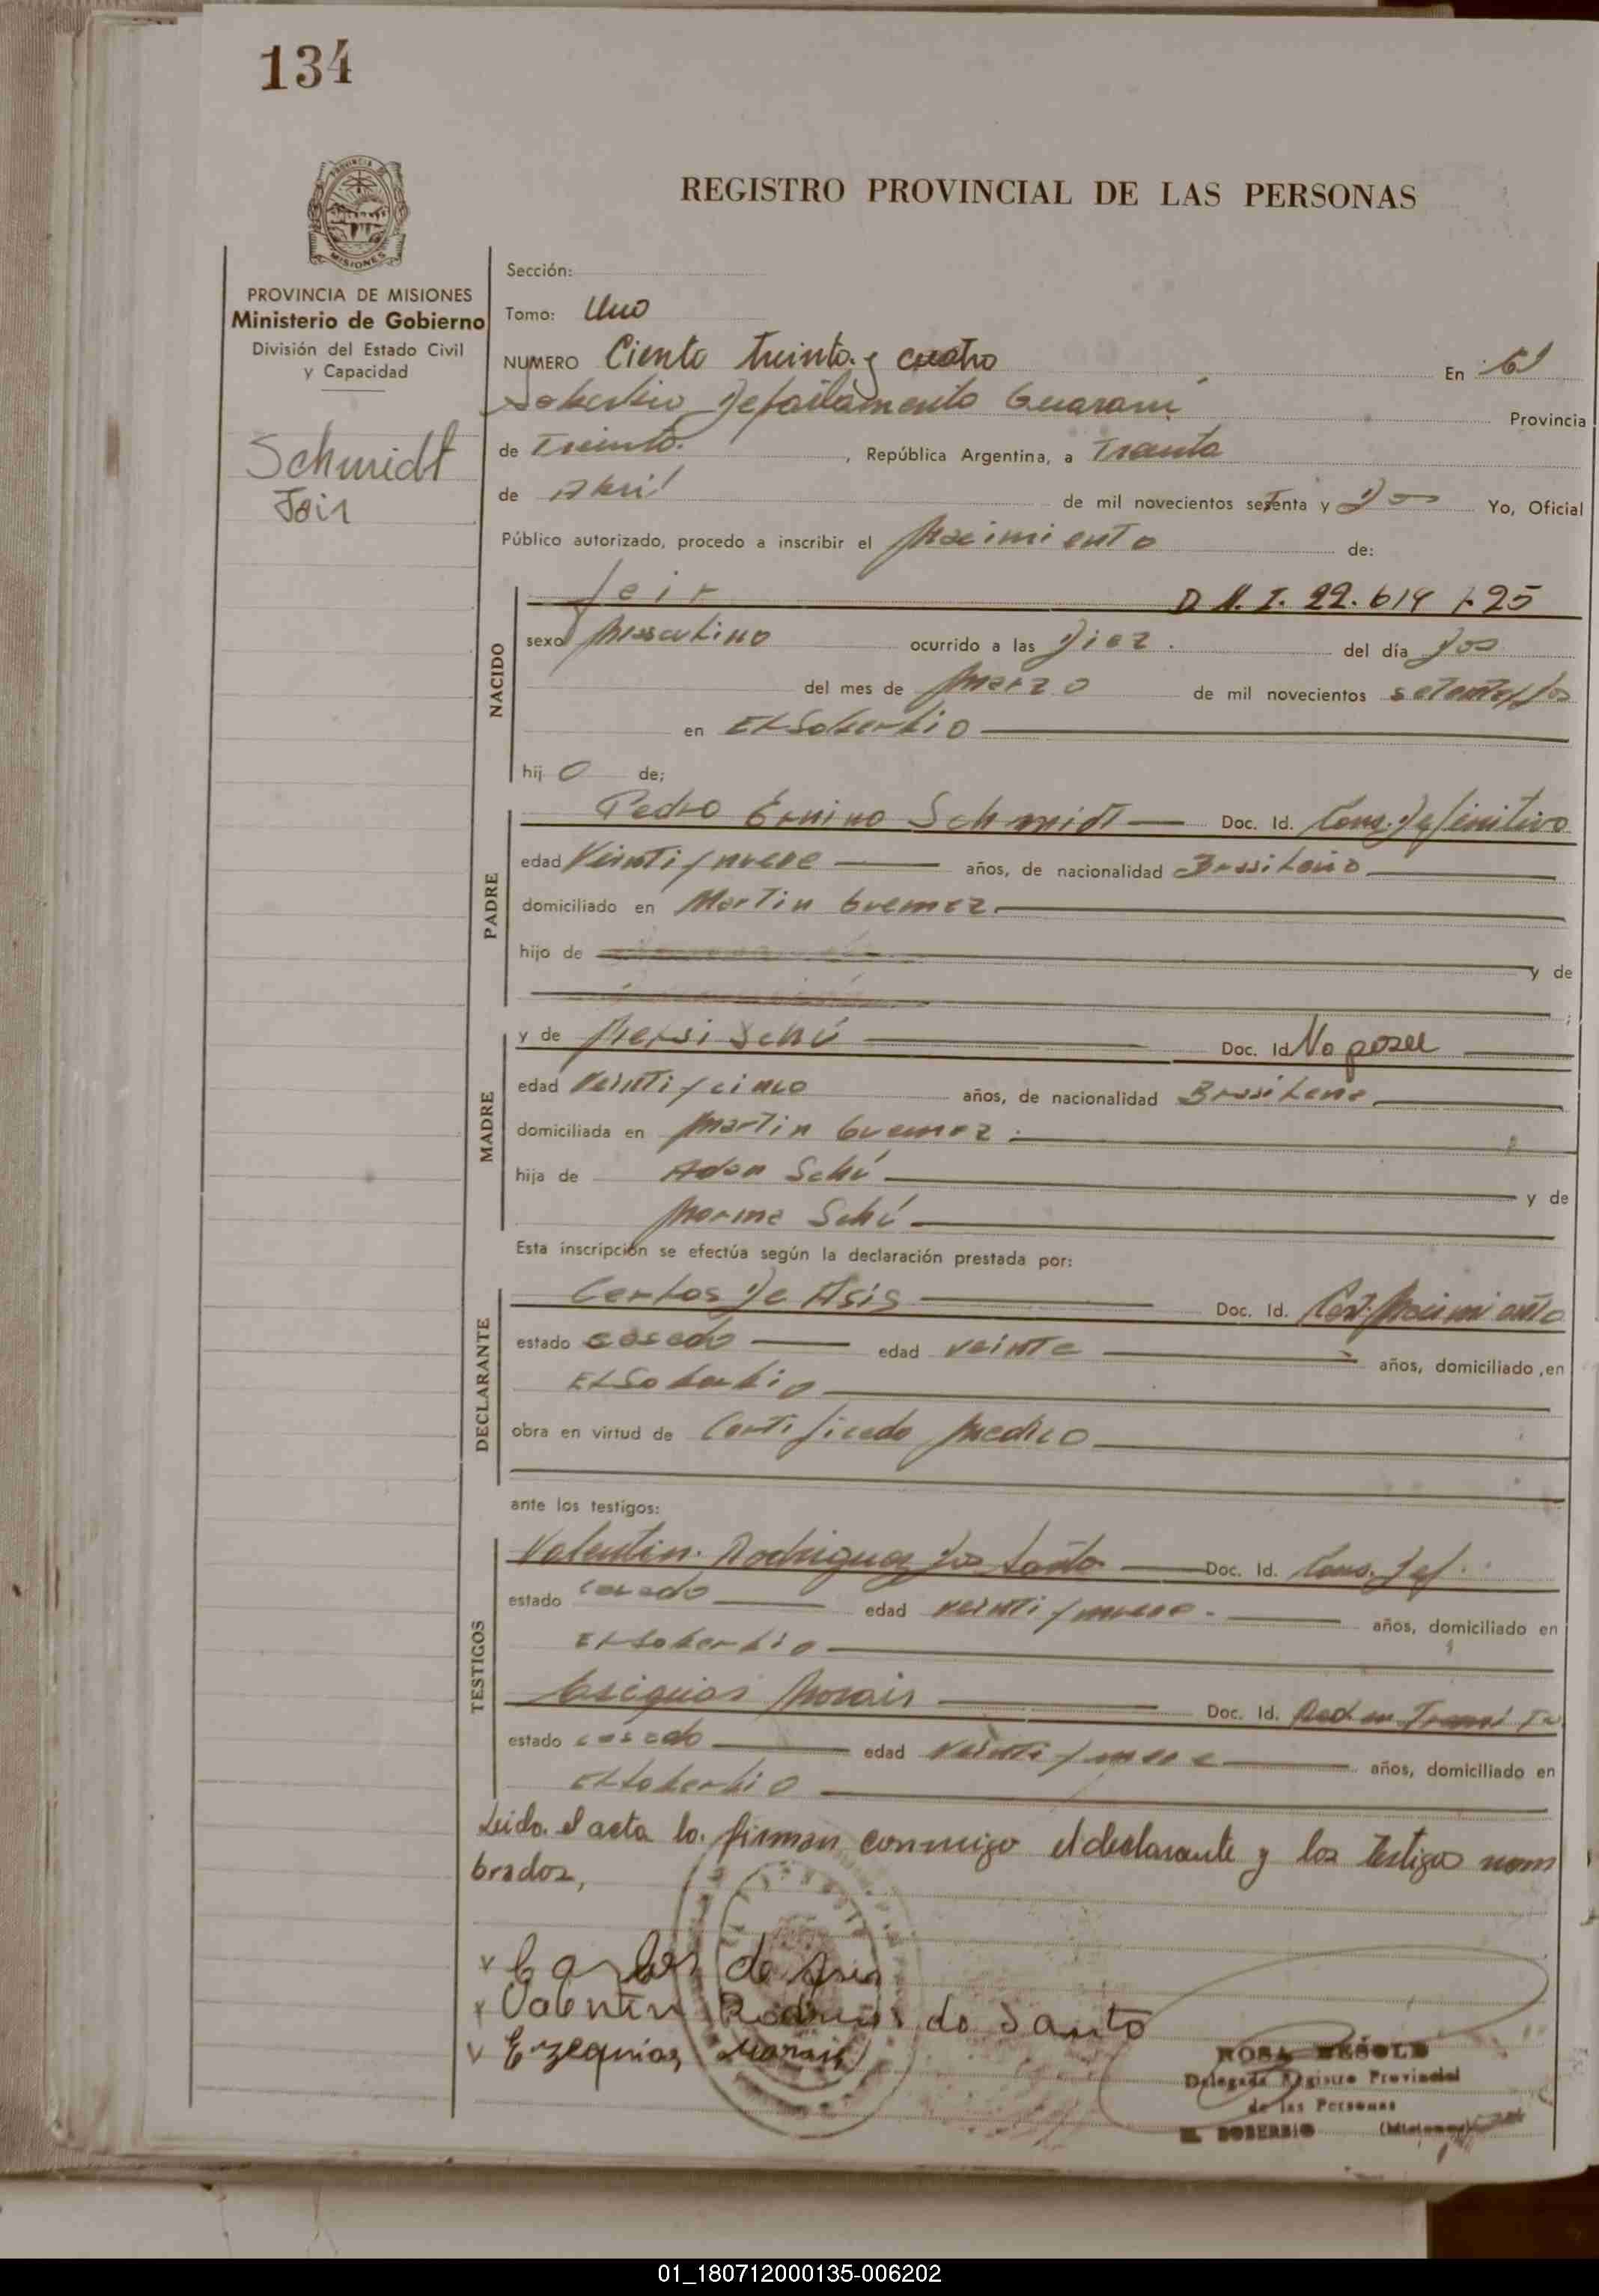 134
REGISTRO PROVINCIAL DE LAS PERSONAS
PROVINCIA DE MISIONES
Ministerio de Gobierno
División del Estado Civil
y Capacidad
Schmidt
Jair
Sección:
Tomo: Uno
NUMERO Ciento treinta y cuatro En El
Soberbio Departamento Guaraní Provincia
de Treinta. , República Argentina, a Treinta
de Abril de mil novecientos setenta y Dos Yo, Oficial
Público autorizado, procedo a inscribir el Nacimiento de:
NACIDO
Jeir D.N.I. 22.614
sexo Masculino ocurrido a las Diez. del día Dos
del mes de Marzo de mil novecientos setentaydos
en El Soberbio
hij o de;
PADRE
Pedro Ernino Schmidt Doc. Id. Cons. Definitivo
edad Veintiynueve años, de nacionalidad Brasileño
domiciliado en Martin Guemez
hijo de y de
MADRE
y de Nersi Schú Doc. Id No posee
edad Veintiycinco años, de nacionalidad Brasilena
domiciliada en Martin Guemez.
hija de Adan Schú y de
Norma Schú
Esta inscripción se efectúa según la declaración prestada por:
DECLARANTE
Carlos De Asis Doc. Id. Cert. Nacimiento
estado casado edad veinte años, domiciliado en
El Soberbio
obra en virtud de Certificado Medico
ante los testigos:
TESTIGOS
Valentin. Rodriguez Dos Santo Doc. Id. Cons. Def.
estado casado edad veintiynueve. años, domiciliado en
El Soberbio
Morais Doc. Id. Rad. en Tramite
estado casado edad veintiynueve años, domiciliado en
El Soberbio
Leida el acta la firman conmigo el declarante y los testigos nom
brados,
Carlos de Asis
Valentin Rodrigues do Santo
Ezequias Morais
ROSA
Delegada Registro Provincial
de las Personas
EL SOBERBIO (Misiones)
01_180712000135-006202